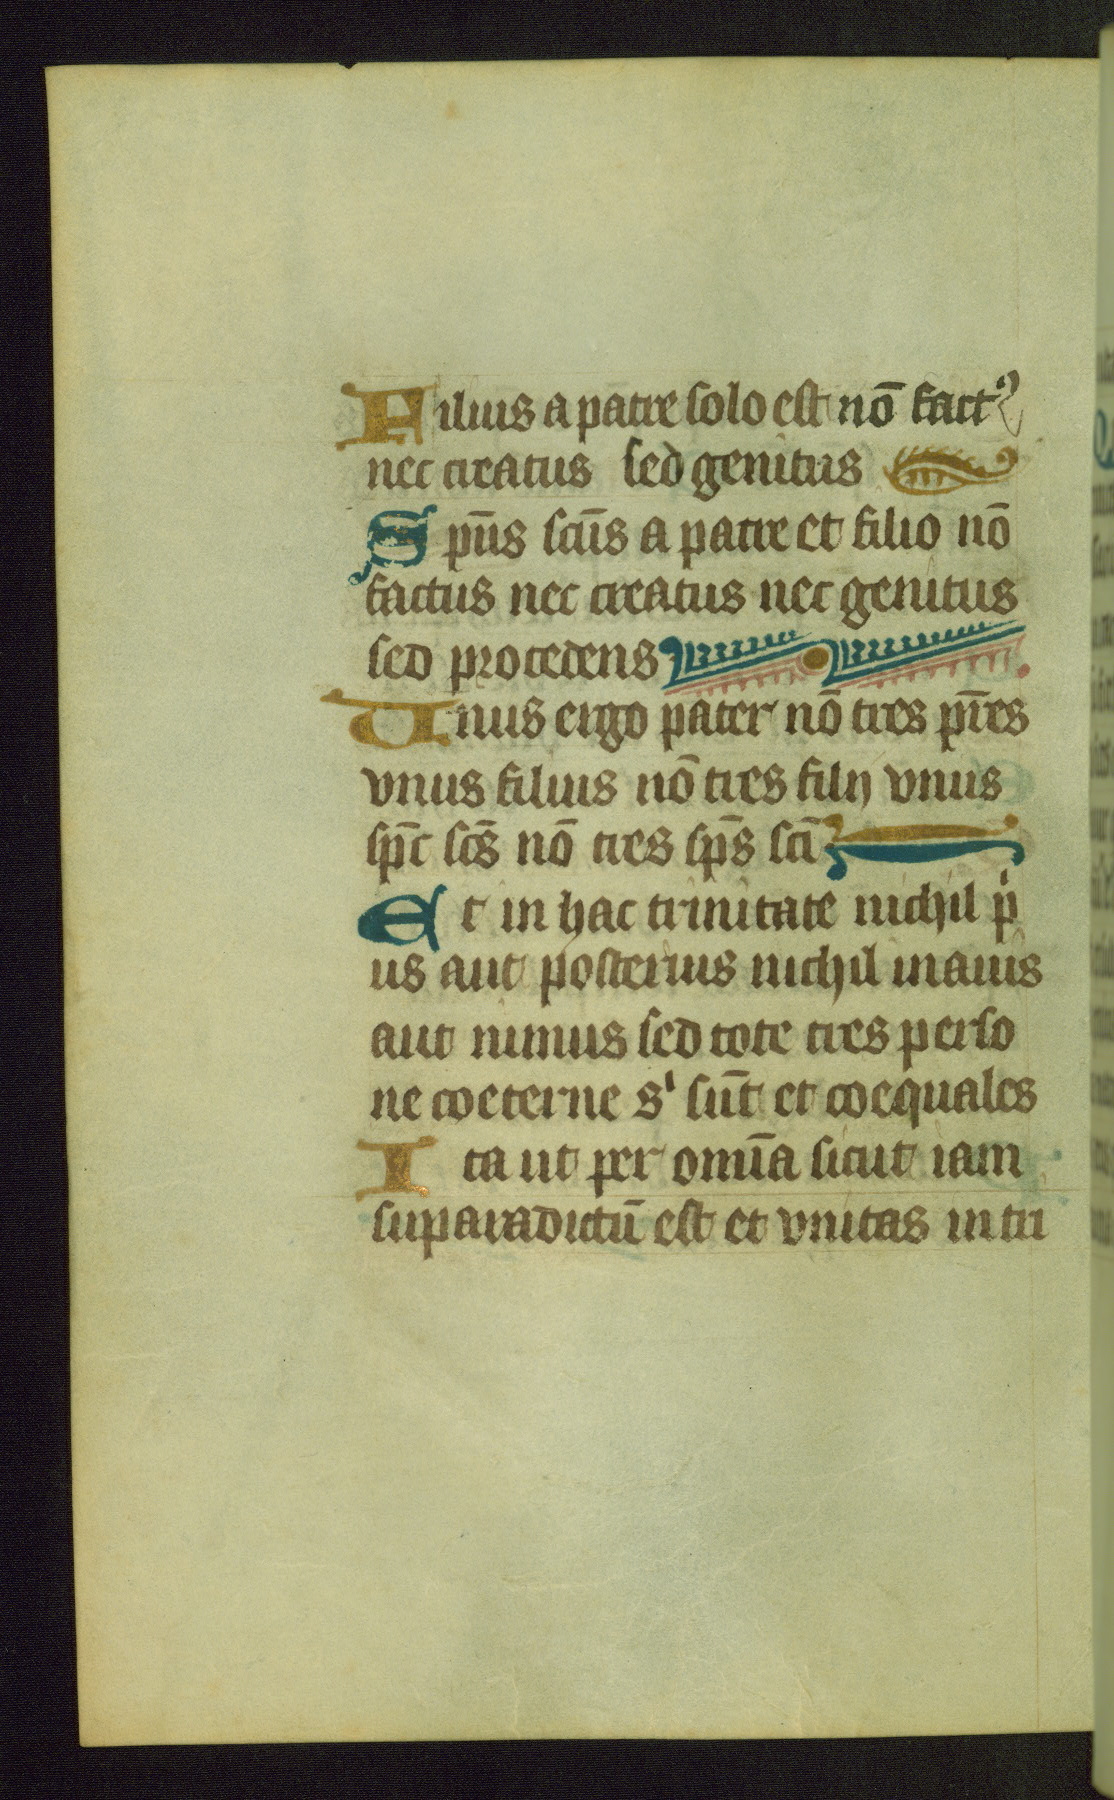 Filius a patre solo est nō factꝰ
nec creatus sed genitus
Spūs scūs a patre et filio nō
factus nec creatus nec genitus
sed procedens
Unus ergo pater nō tres pr̄es
vnus filius nō tres filij vnus
spc̄ scs̄ nō tres sps̄ scī
Et in hac trinitate nichil pⁱ
us aut posterius nichil maius
aut minus sed tote tres perso
ne coeterne sⁱ sūt et coequales
Ita ut per omīa sicut iam
suparadictū est et vnitas in tri